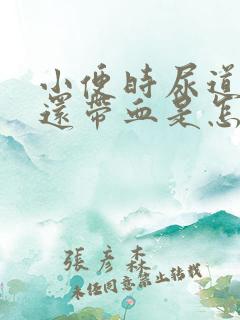 小便時尿道
還帶血是怎
張彥森
未任同意禁止转载